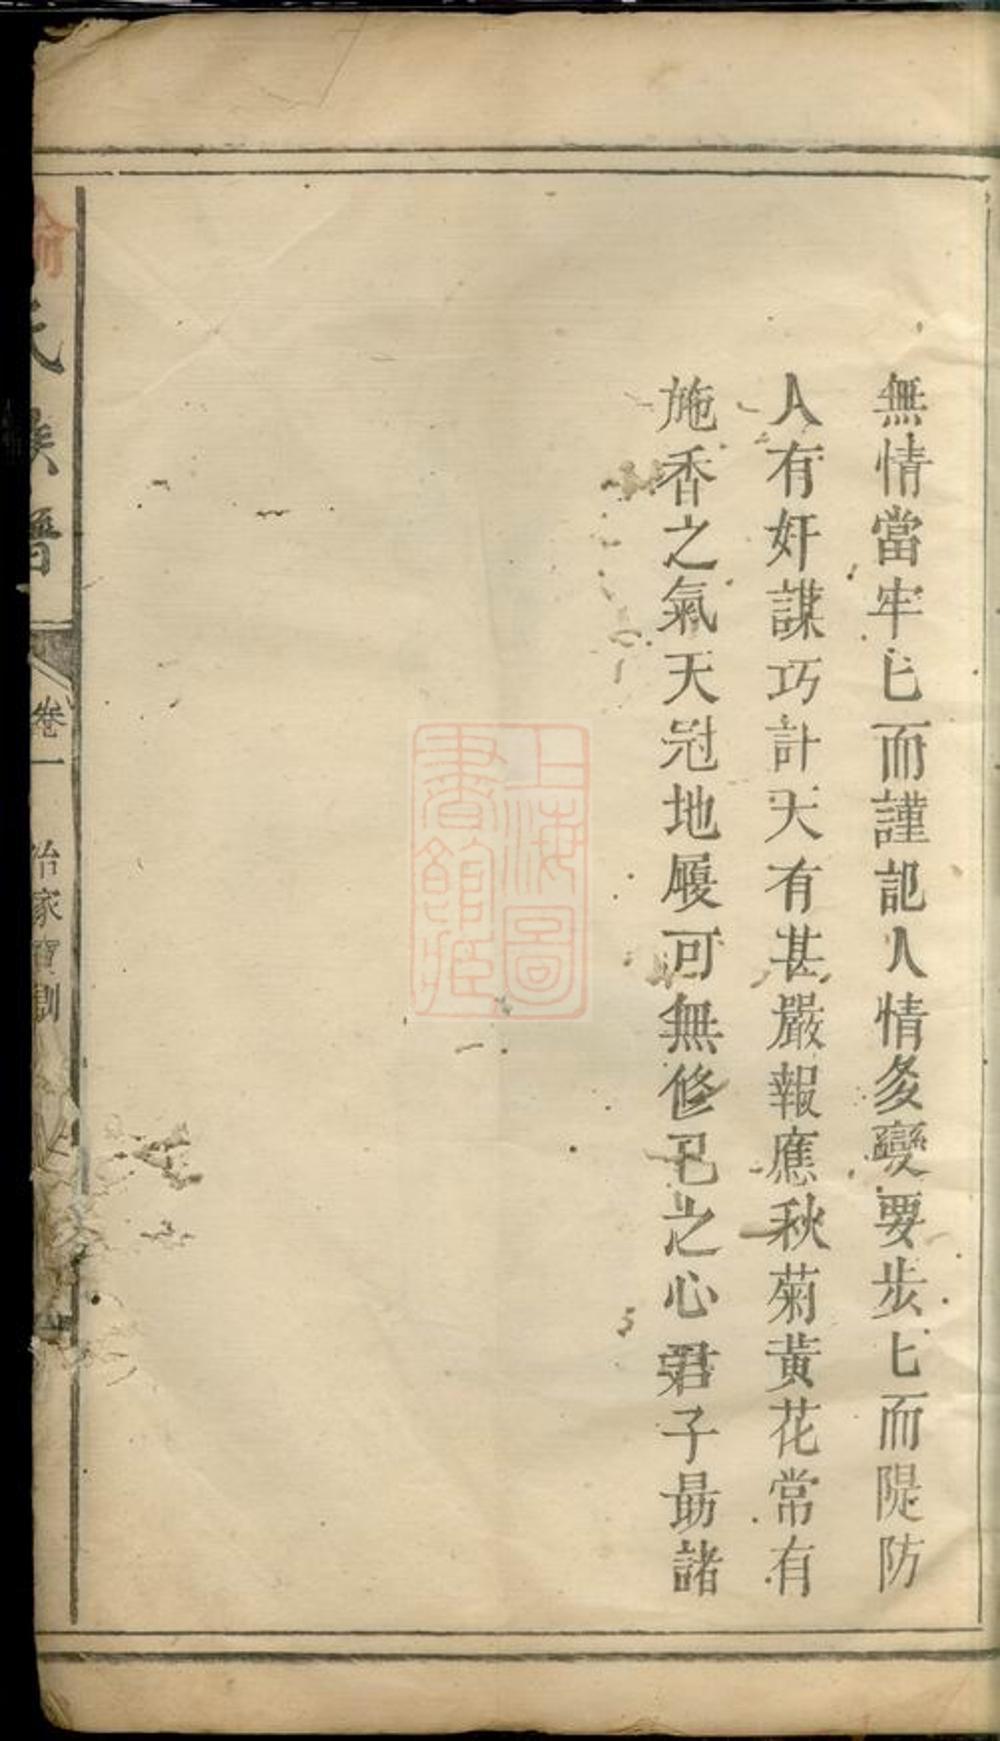 無情當牢匕而謹記人情多變要步匕而隄防
人有奸謀巧計天有甚嚴報應秋菊黃花常有
施香之氣天冠地履可無修已之心君子勗諸
上海圖
書館藏
俞氏族譜
卷一
治家寶訓